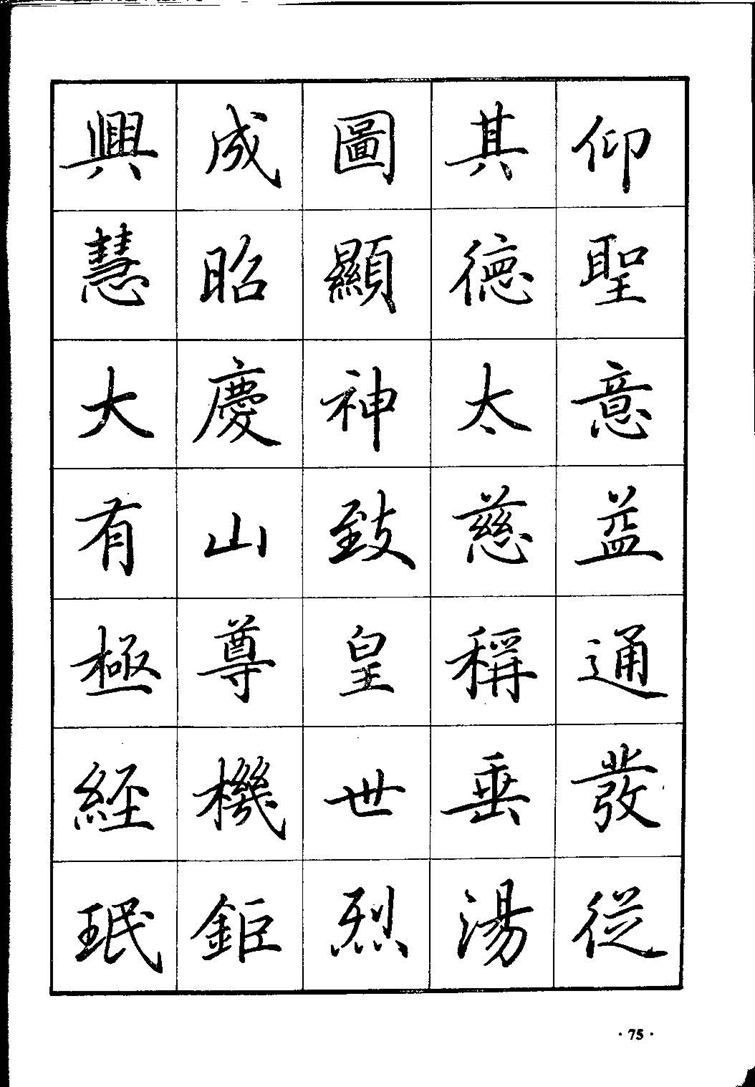 仰聖意益通發從
其德太慈稱垂湯
圖顯神致皇世烈
成昭慶山尊機鉅
興慧大有極經珉
·75·